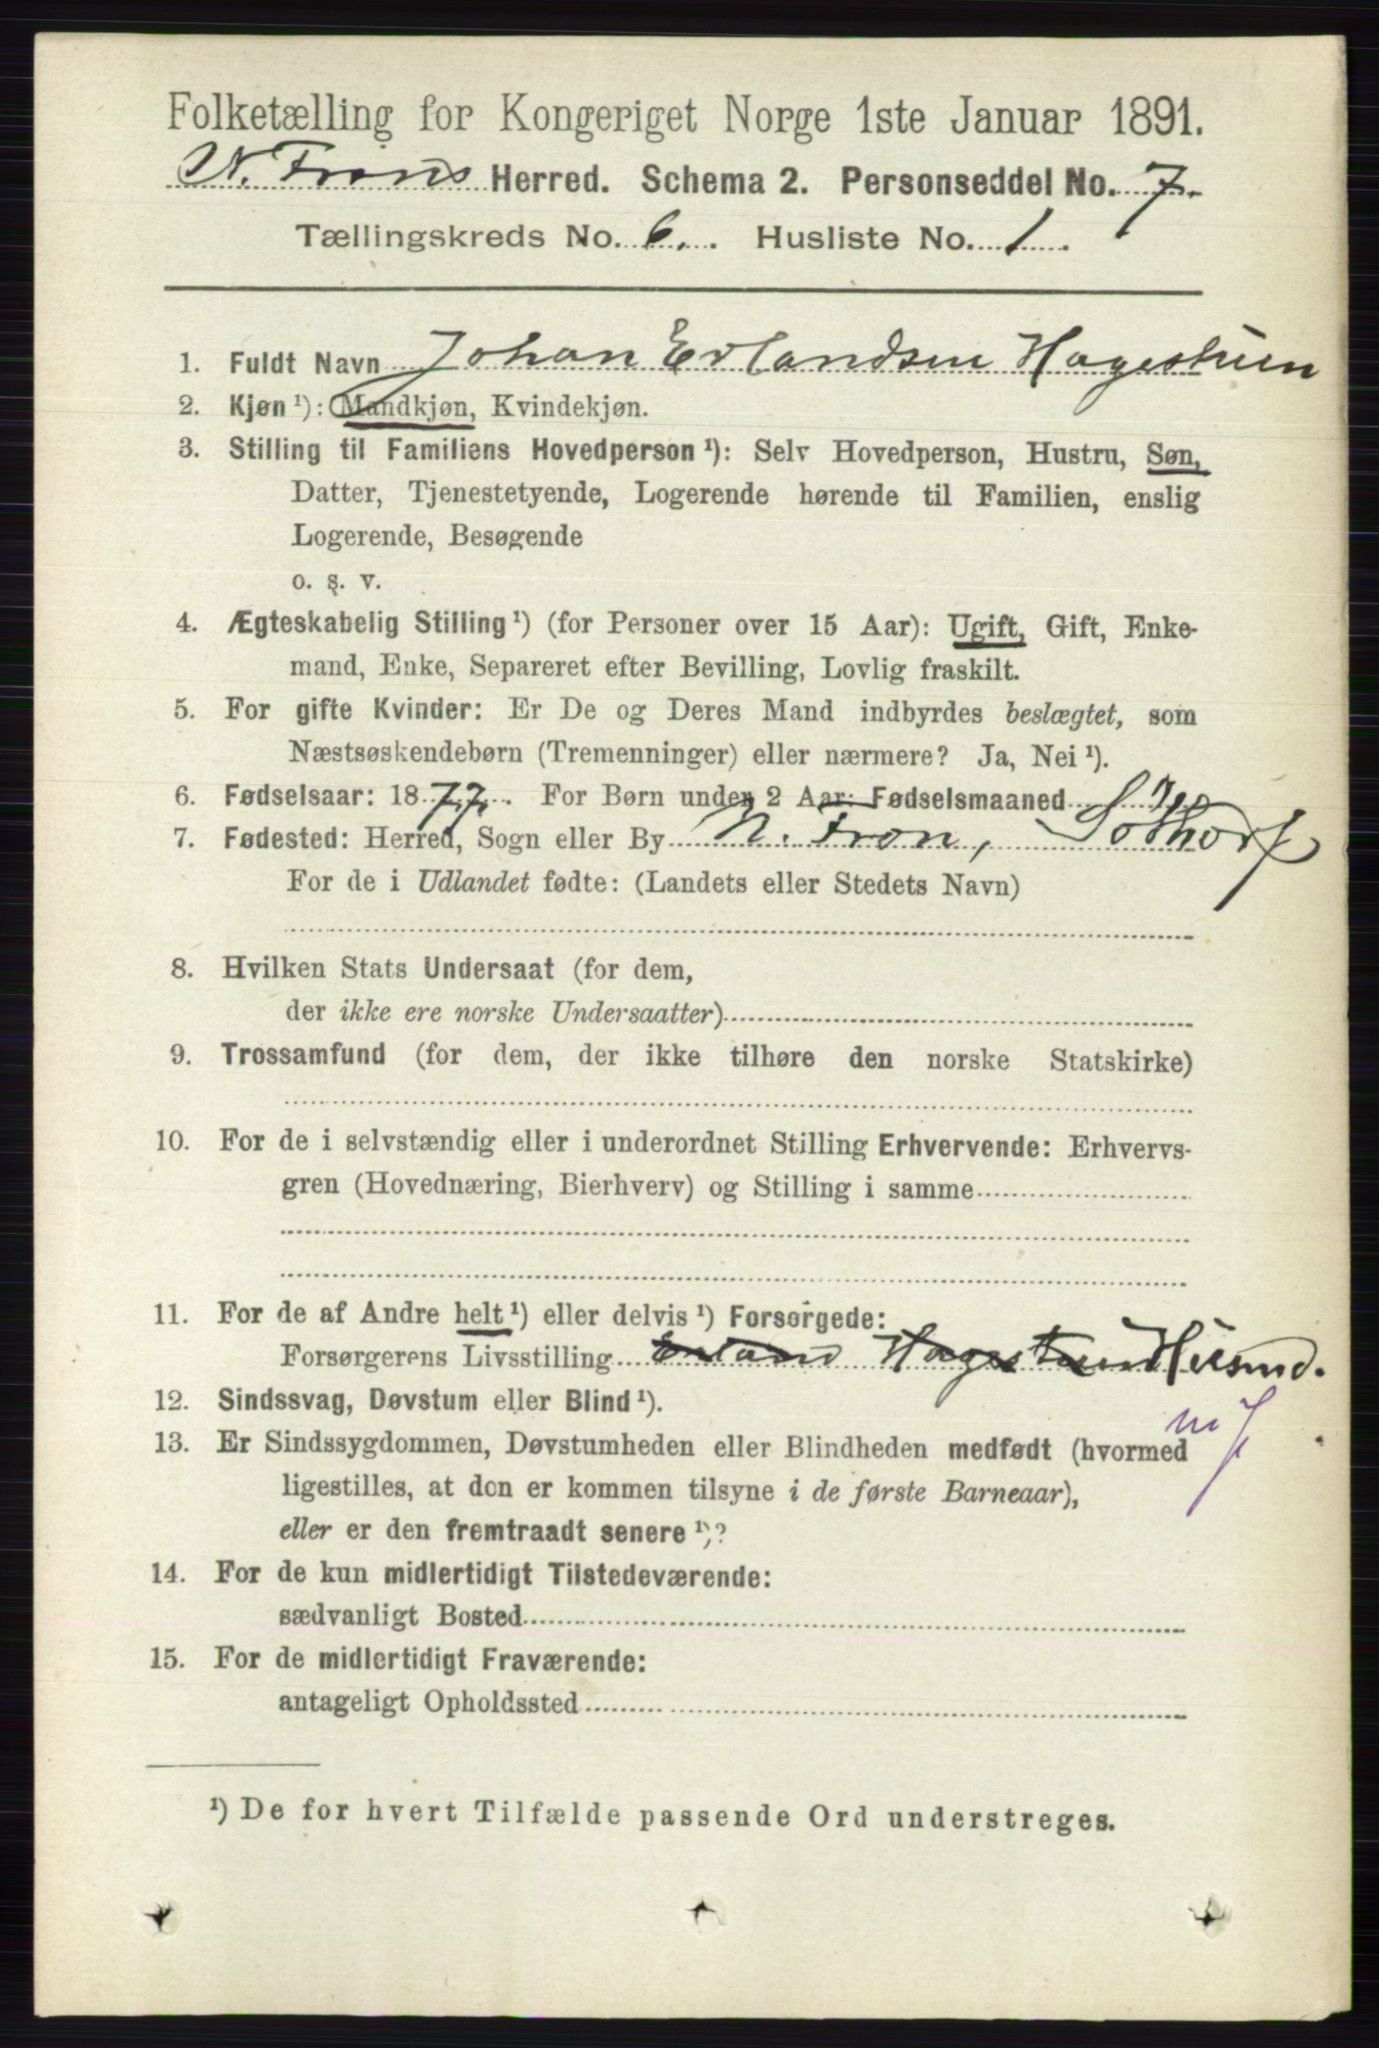 Folketælling for Kongeriget Norge 1ste Januar 1891.
N. Frons Herred. Schema 2. Personseddel No. 7.
Tællingskreds No. 6. Husliste No. 1.
1. Fuldt Navn Johan Erlandsen Hagestuen
2. Kjøn ¹): Mandkjøn, Kvindekjøn.
3. Stilling til Familiens Hovedperson ¹): Selv Hovedperson, Hustru, Søn,
Datter, Tjenestetyende, Logerende hørende til Familien, enslig
Logerende, Besøgende
o. s. v.
4. Ægteskabelig Stilling ¹) (for Personer over 15 Aar): Ugift, Gift, Enke-
mand, Enke, Separeret efter Bevilling, Lovlig fraskilt.
5. For gifte Kvinder: Er De og Deres Mand indbyrdes beslægtet, som
Næstsøskendebørn (Tremenninger) eller nærmere? Ja, Nei ¹).
6. Fødselsaar: 1877. For Børn under 2 Aar: Fødselsmaaned
7. Fødested: Herred, Sogn eller By N. Fron, Sothorp
For de i Udlandet fødte: (Landets eller Stedets Navn)
8. Hvilken Stats Undersaat (for dem,
der ikke ere norske Undersaatter)
9. Trossamfund (for dem, der ikke tilhøre den norske Statskirke)
10. For de i selvstændig eller i underordnet Stilling Erhvervende: Erhvervs-
gren (Hovednæring, Bierhverv) og Stilling i samme
11. For de af Andre helt ¹) eller delvis ¹) Forsørgede:
Forsørgerens Livsstilling Erland Hagestuen Husmd.
12. Sindssvag, Døvstum eller Blind ¹).
13. Er Sindssygdommen, Døvstumheden eller Blindheden medfødt (hvormed
ligestilles, at den er kommen tilsyne i de første Barneaar),
eller er den fremtraadt senere ¹)?
14. For de kun midlertidigt Tilstedeværende:
sædvanligt Bosted
15. For de midlertidigt Fraværende:
antageligt Opholdssted
¹) De for hvert Tilfælde passende Ord understreges.